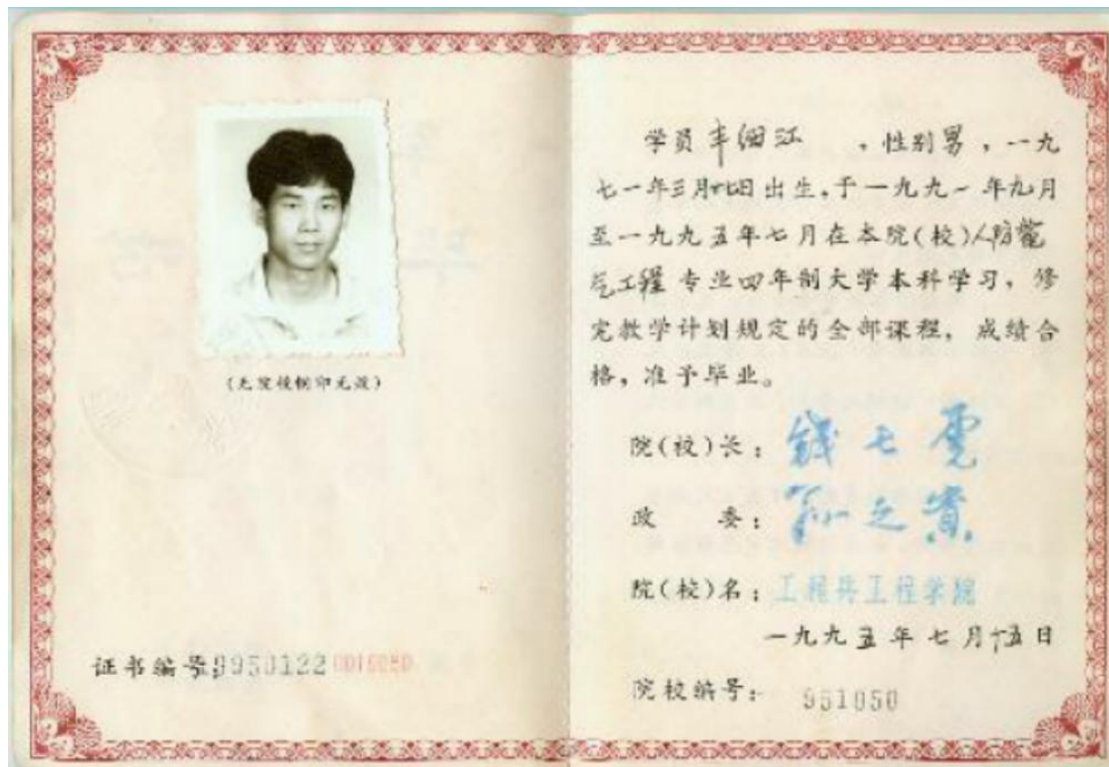 (无院校钢印无效)
证书编号:9950122 0010080
学员丰细江,性别男,一九
七一年三月 日出生,于一九九一年九月
至一九九五年七月在本院(校)人防电
气工程专业四年制大学本科学习,修
完教学计划规定的全部课程,成绩合
格,准予毕业。
院(校)长:钱七虎
政 委:
院(校)名:工程兵工程学院
一九九五年七月十五日
院校编号:951050